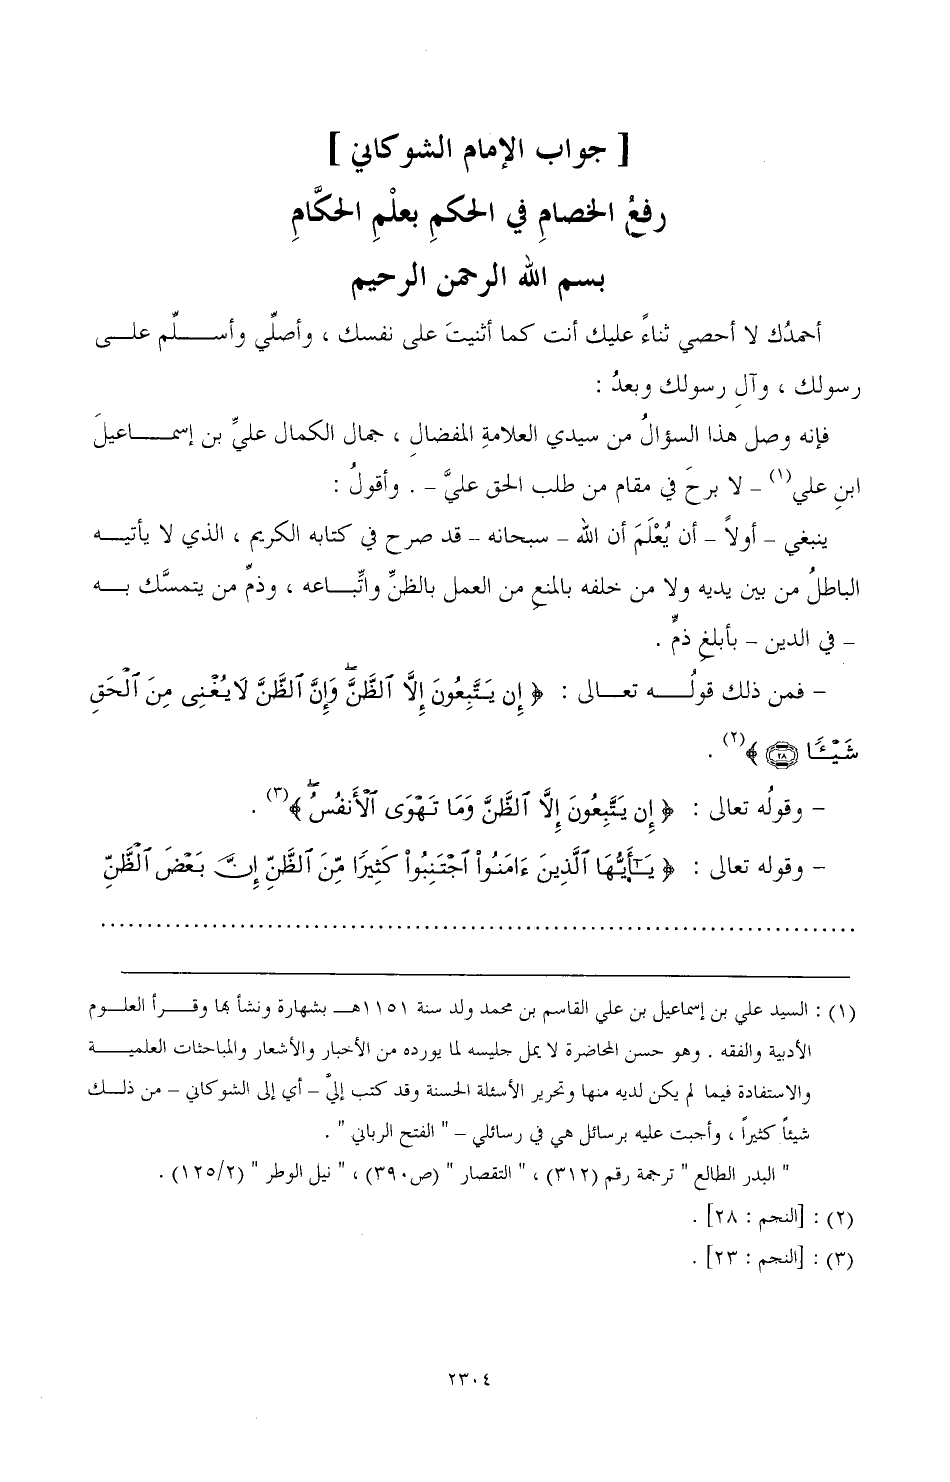 [ جواب الإمام الشوكاني ]
رفعُ الخصامِ في الحكمِ بعلْمِ الحكَّامِ
بسم الله الرحمن الرحيم
أحمدُك لا أحصي ثناءً عليك أنت كما أثنيتَ على نفسك ، وأصلِّي وأسلِّم على
رسولك ، وآلِ رسولك وبعدُ :
فإنه وصل هذا السؤالُ من سيدي العلامةِ المفضالِ ، جمال الكمال عليِّ بن إسماعيلَ
ابنِ علي(١) – لا برحَ في مقام من طلب الحق عليَّ – . وأقولُ :
ينبغي – أولاً – أن يُعْلَمَ أن الله – سبحانه – قد صرح في كتابه الكريم ، الذي لا يأتيه
الباطلُ من بين يديه ولا من خلفه بالمنعِ من العمل بالظنِّ واتِّباعه ، وذمِّ من يتمسَّك به
– في الدين – بأبلغِ ذمٍّ .
– فمن ذلك قولُه تعالى : ﴿ إِن يَتَّبِعُونَ إِلَّا ٱلظَّنَّۖ وَإِنَّ ٱلظَّنَّ لَا يُغْنِى مِنَ ٱلْحَقِّ
شَيْـًٔا ٢٨ ﴾(٢) .
– وقولُه تعالى : ﴿ إِن يَتَّبِعُونَ إِلَّا ٱلظَّنَّ وَمَا تَهْوَى ٱلْأَنفُسُۖ ﴾(٣) .
– وقوله تعالى : ﴿ يَـٰٓأَيُّهَا ٱلَّذِينَ ءَامَنُوا۟ ٱجْتَنِبُوا۟ كَثِيرًا مِّنَ ٱلظَّنِّ إِنَّ بَعْضَ ٱلظَّنِّ
..........................................................................
(١) : السيد علي بن إسماعيل بن علي القاسم بن محمد ولد سنة ١١٥١هـ بشهارة ونشأ بها وقرأ العلوم
الأدبية والفقه . وهو حسن المحاضرة لا يمل جليسه لما يورده من الأخبار والأشعار والمباحثات العلمية
والاستفادة فيما لم يكن لديه منها وتحرير الأسئلة الحسنة وقد كتب إليَّ – أي إلى الشوكاني – من ذلك
شيئاً كثيراً ، وأجبت عليه برسائل هي في رسائلي – " الفتح الرباني " .
" البدر الطالع " ترجمة رقم (٣١٢) ، " التقصار " (ص٣٩٠) ، " نيل الوطر " (١٢٥/٢) .
(٢) : [النجم : ٢٨] .
(٣) : [النجم : ٢٣] .
٢٣٠٤